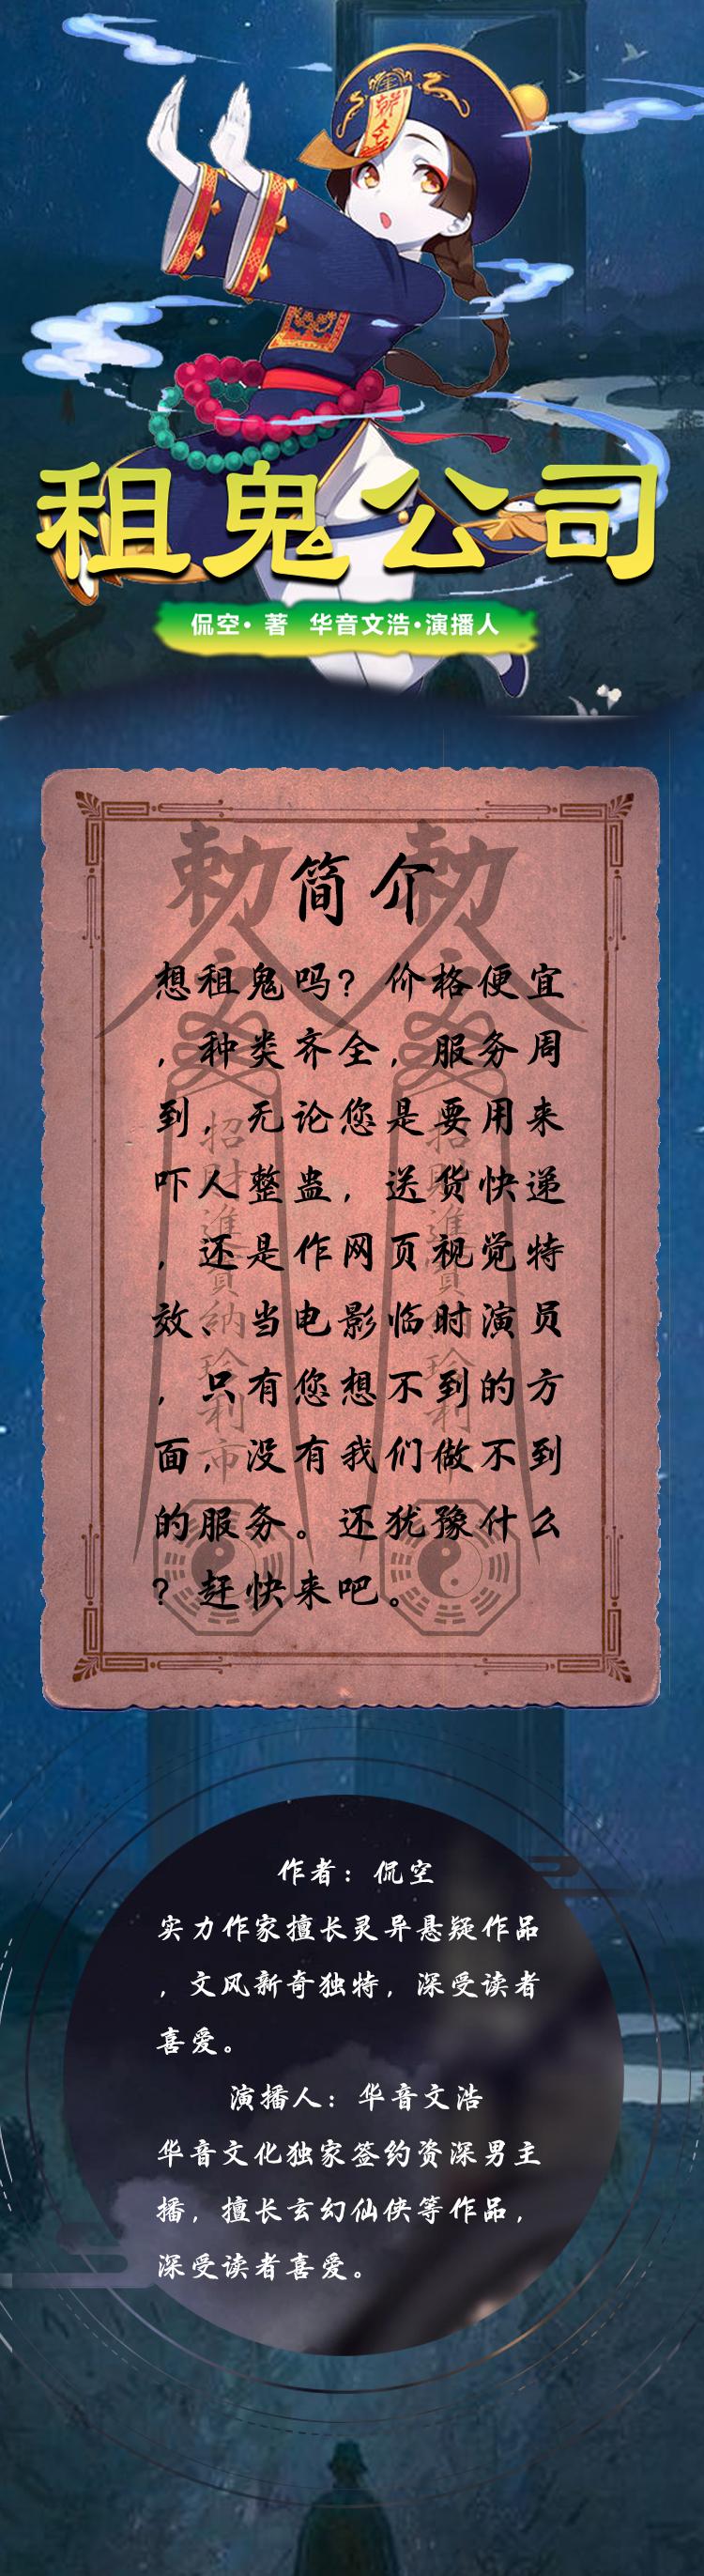 租鬼公司
侃空·著 华音文浩·演播人
简介
想租鬼吗?价格便宜
,种类齐全,服务周
到,无论您是要用来
吓人整蛊,送货快递
,还是作网页视觉特
效、当电影临时演员
,只有您想不到的方
面,没有我们做不到
的服务。还犹豫什么
?赶快来吧。
作者:侃空
实力作家擅长灵异悬疑作品
,文风新奇独特,深受读者
喜爱。
演播人:华音文浩
华音文化独家签约资深男主
播,擅长玄幻仙侠等作品,
深受读者喜爱。